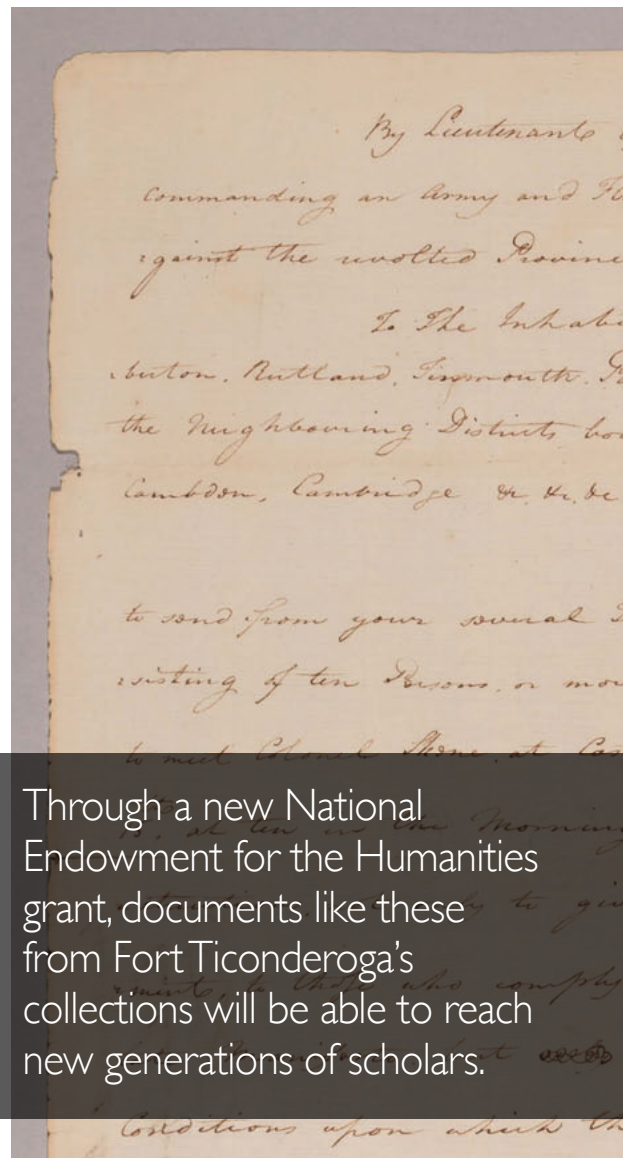 By Lieutenant
commanding an Army and
against the revolted Provinc
To The Inhabi
buton, Rutland, Tinmouth, P
the Neighbouring Districts bo
Cambden, Cambridge &c. &c. &c
to send from your several
sisting of ten Persons, or mor
to meet Colonel Skene, at Cas
at ten in the Morning
to giv
to those who comply
Conditions upon which th
Through a new National
Endowment for the Humanities
grant, documents like these
from Fort Ticonderoga’s
collections will be able to reach
new generations of scholars.